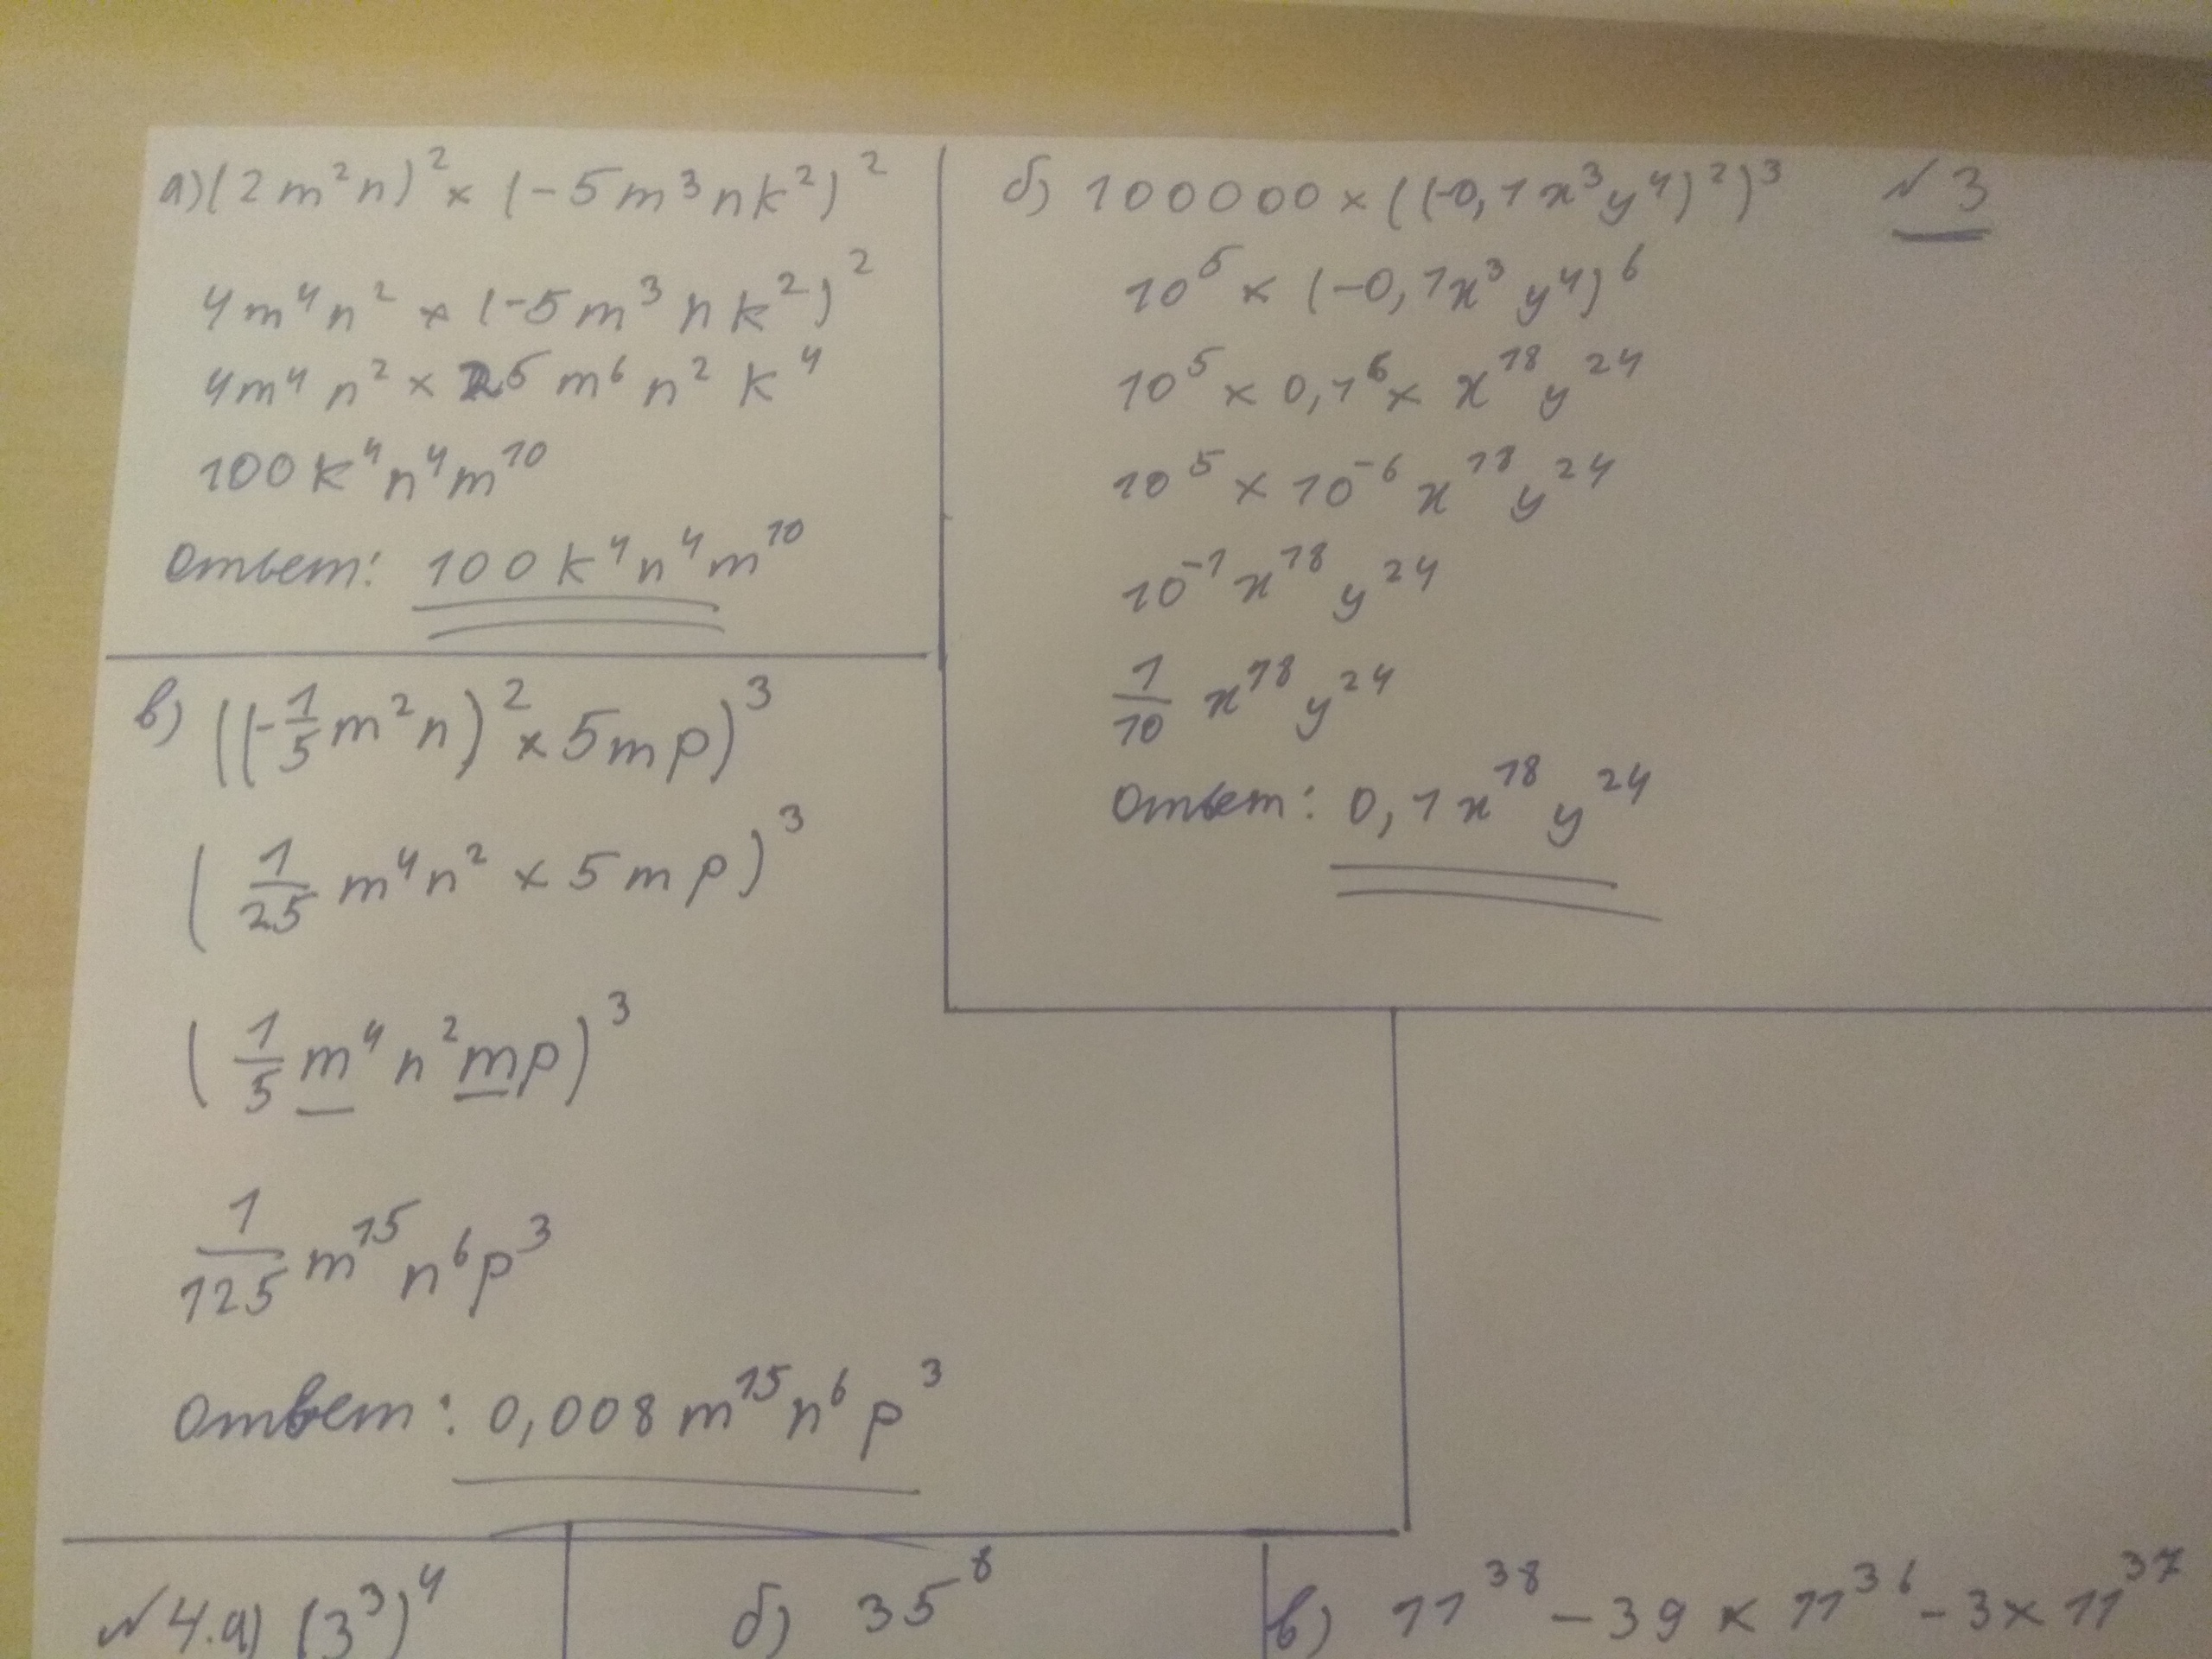 а) (2m²n)² × (-5m³nk²)²
4m⁴n² × (-5m³nk²)²
4m⁴n² × 25m⁶n²k⁴
100k⁴n⁴m¹⁰
Ответ: 100k⁴n⁴m¹⁰
б) 100000 × ((-0,1x³y⁴)²)³
№3
10⁵ × (-0,1x³y⁴)⁶
10⁵ × 0,1⁶ × x¹⁸y²⁴
10⁵ × 10⁻⁶ x¹⁸y²⁴
10⁻¹ x¹⁸ y²⁴
1/10 x¹⁸ y²⁴
Ответ: 0,1x¹⁸y²⁴
в) ((-1/5 m²n)² × 5mp)³
(1/25 m⁴n² × 5mp)³
(1/5 m⁴n²mp)³
1/125 m¹⁵n⁶p³
Ответ: 0,008m¹⁵n⁶p³
№4. а) (3³)⁴
б) 35⁸
в) 11³⁸ - 39 × 11³⁶ - 3 × 11³⁷